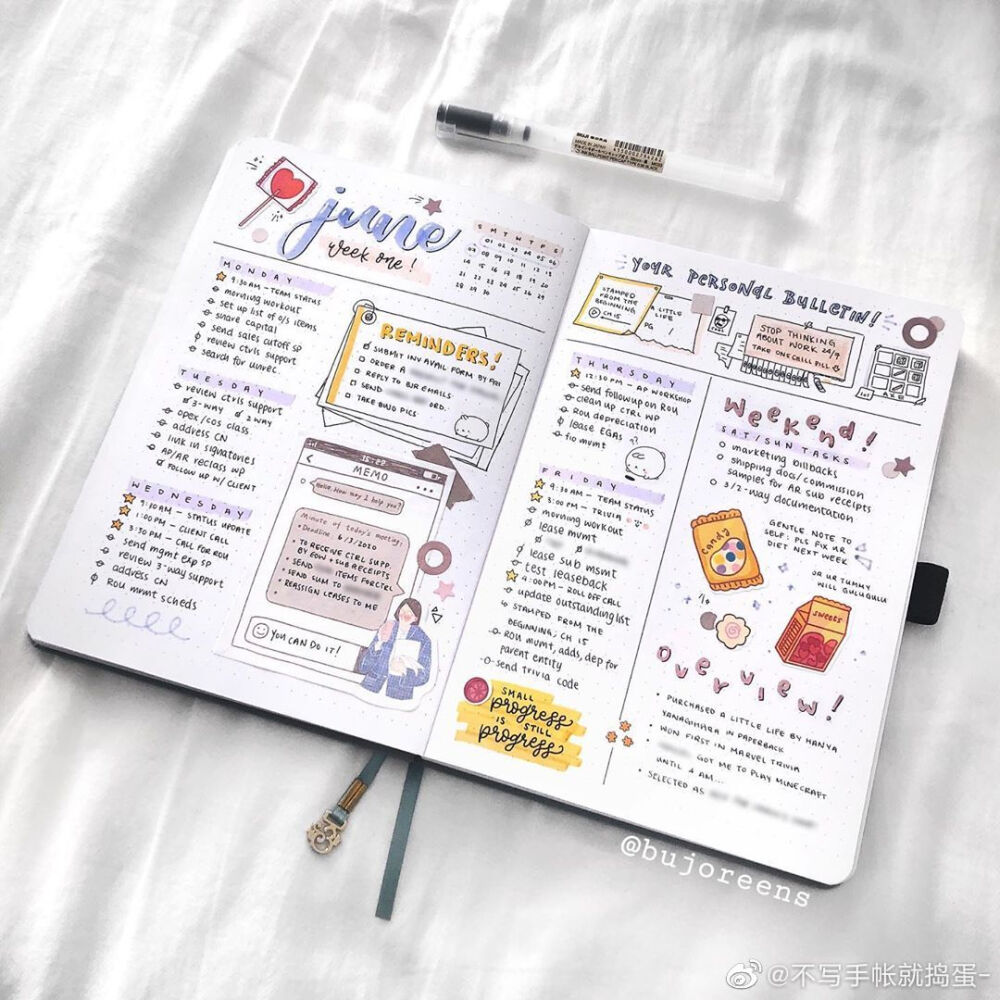 june
week one!
S M T W T F S
01 02 03 04 05 06
07 08 09 10 11 12 13
14 15 16 17 18 19 20
21 22 23 24 25 26 27
28 29 30
MONDAY
9:30 AM - TEAM STATUS
morning workout
set up list of e/s items
share capital
send sales cutoff sp
review ctrls support
search for unrec.
TUESDAY
review ctrls support
3-WAY 2 WAY
opex/cos class
address CN
link in signatories
AP/AR reclass wp
FOLLOW UP W/ CLIENT
WEDNESDAY
9:30 AM - STATUS UPDATE
1:00 PM - CLIENT CALL
3:30 PM - CALL FOR ROU
send mgmt exp sp
review 3-way support
address CN
ROU mvmt scheds
REMINDERS!
SUBMIT INV AVAIL FORM BY FRI
ORDER A
REPLY TO BJR EMAILS
SEND ORD.
TAKE BUJO PICS
15:27
MEMO
Hello. How may I help you?
Minute of today's meeting:
Deadline: 6/3/2020
TO RECEIVE CTRL SUPP.
BY EOW - SUB RECEIPTS
SEND ITEMS FOR CTRL
SEND SUM TO
REASSIGN LEASES TO ME
YOU CAN DO IT!
YOUR PERSONAL BULLETIN!
STAMPED
FROM THE
BEGINNING
CH 15
A LITTLE
LIFE
PG
STOP THINKING
ABOUT WORK 24/7
TAKE ONE CHILL PILL
THURSDAY
12:30 PM - AP WORKSHOP
send followup on ROU
clean up CTRL WP
ROU depreciation
lease EGAs
fio mvmt
FRIDAY
9:30 AM - TEAM STATUS
3:00 PM - TRIVIA
morning workout
lease mvmt
lease sub msmt
test leaseback
4:00 PM - ROLL OFF CALL
update outstanding list
STAMPED FROM THE
BEGINNING; CH 15
ROU mvmt, adds, dep for
parent entity
send trivia code
SMALL
progress
IS STILL
progress
Weekend!
SAT/SUN TASKS
marketing billbacks
shipping docs/commission
samples for AR sub receipts
3/2-way documentation
candy
GENTLE NOTE TO
SELF: PLS FIX UR
DIET NEXT WEEK
OR UR TUMMY
WILL GULUGULU
SWEETS
Overview!
PURCHASED A LITTLE LIFE BY HANYA
YANAGIHARA IN PAPERBACK
WON FIRST IN MARVEL TRIVIA
GOT ME TO PLAY MINECRAFT
UNTIL 4 AM...
SELECTED AS
@bujoreens
@不写手帐就捣蛋-